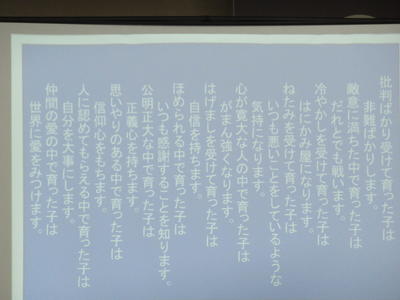 批判ばかり受けて育った子は
非難ばかりします。
敵意に満ちた中で育った子は
だれとでも戦います。
冷やかしを受けて育った子は
はにかみ屋になります。
ねたみを受けて育った子は
いつも悪いことをしているような
気持になります。
心が寛大な人の中で育った子は
がまん強くなります。
はげましを受けて育った子は
自信を持ちます。
ほめられる中で育った子は
いつも感謝することを知ります。
公明正大な中で育った子は
正義心を持ちます。
思いやりのある中で育った子は
信仰心をもちます。
人に認めてもらえる中で育った子は
自分を大事にします。
仲間の愛の中で育った子は
世界に愛をみつけます。